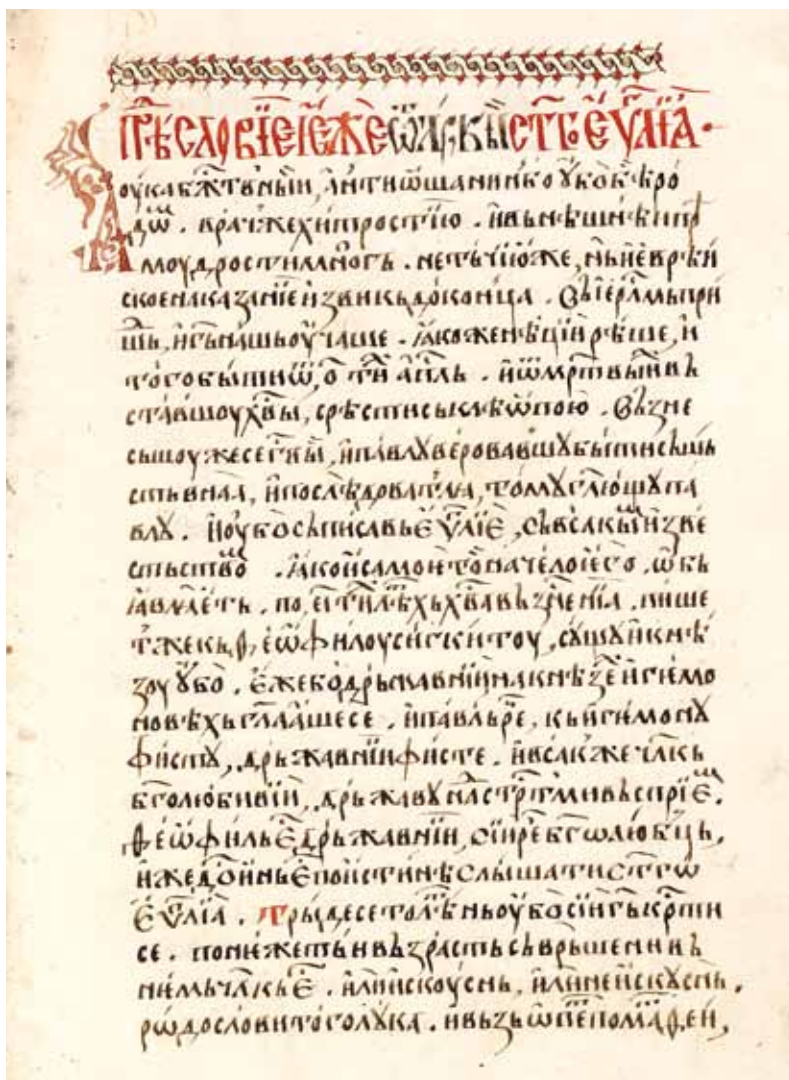 прѣⷣсловїе іеже ѿ лꙋкы ст҃го еѵⷢ҇лїа ·
Лоука бж҃твныи, антиѡшанинь ѹбо бѣ ро
дѡⷨ . врачже хитростїю . и вьнѣшнѣи прѣ
моудрости мнѡгь . не тьчїю же, нь и еврѣи
скоеи наказанїе извикь до конца . Вь іерⷭ҇лмь при
шⷣь, и гь҃ нашь оучаше . ꙗкоже нѣцїи рѣше, и
того быти ѿ, о҃ ти аⷫ҇пль . и ѿ мрт҃выи вь
ставшоу хв҃ы, срѣсти сь клеѡпою . Вьзне
сьшоу же се гв҃ы, и павлꙋ веровавшꙋ бысть
, и послѣдователь, томꙋ гл҃ющꙋ па
влꙋ . И оубо сьписавь еѵⷢ҇лїе, сь всакыⷨ изве
стьствоⷨ . ꙗко и само и то начело іего . ѡбь
ꙗвлаеть . по, еі҃ ти лѣⷮхь хв҃а вьзнⷭ҇енїа . пише
т же кь ѳеѡфилоу сигклитоу, сꙋщꙋ и кнѣ
зоу ѹбо . Еже бо дрьжавнїи на кнѣзеⷯ и гемо
новѣхь гл҃ааше се . и павль рⷱ҇е, кь игемонꙋ
фистꙋ, дрьжавнїи фисте . и всак же чл҃кь
бг҃олюбивїи, дрьжавꙋ на стрⷭ҇тми вьспрїеⷨ.
Ѳеѡфиль еⷭ҇ дрьжавнїи, сїи рⷱ҇е бг҃ѡлюбⷰь,
иже доⷭ҇инь еⷭ҇ поистинѣ слышати ст҃гѡ
еѵⷢ҇лїа . Трыдесетолѣтнь оубо сїи гь҃ крⷭ҇ти
се . понѥже ть и вьзрасть сьврьшенни вь
нимь чл҃кь еⷭ҇ . или искоуснь, или неискꙋснь .
рѡдослови того лꙋка . и вьзь ѡпⷭ҇е по маⷮѳеи,